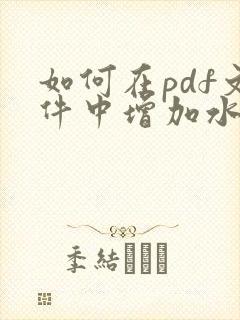 如何在pdf文
件中增加水
季结